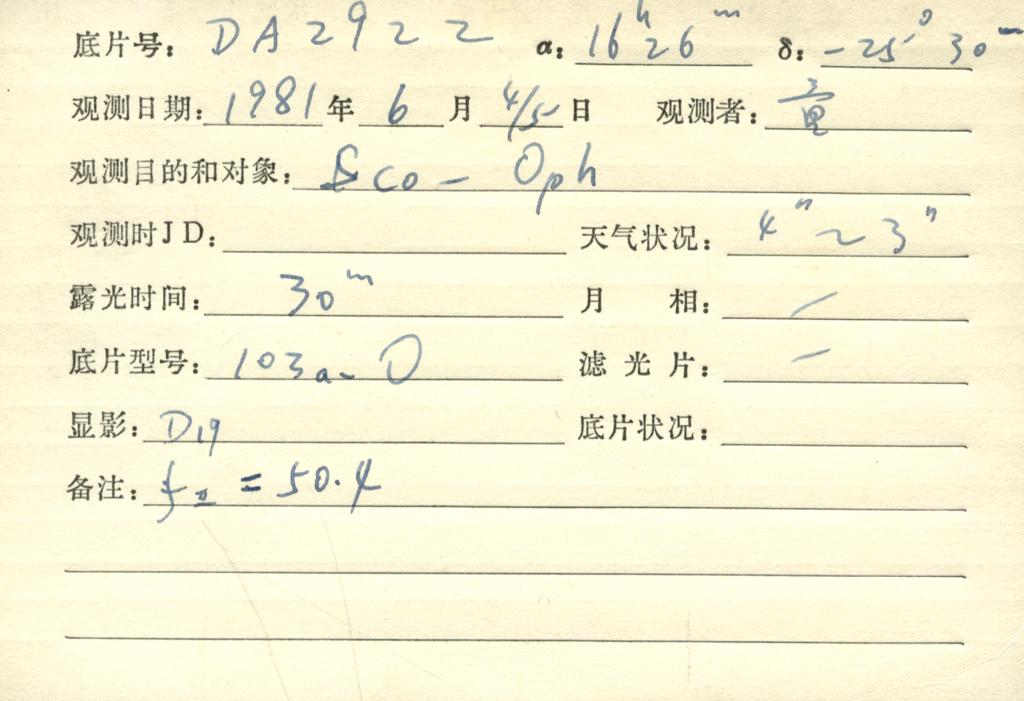 底片号: DA2922 α: 16h26m δ: -25°30m
观测日期: 1981年 6月 4/5日 观测者:
观测目的和对象: Sco - Oph
观测时JD: 天气状况: 4" ~ 3"
露光时间: 30m 月 相: —
底片型号: 103a-O 滤光片: —
显影: D19 底片状况:
备注: fII = 50.4